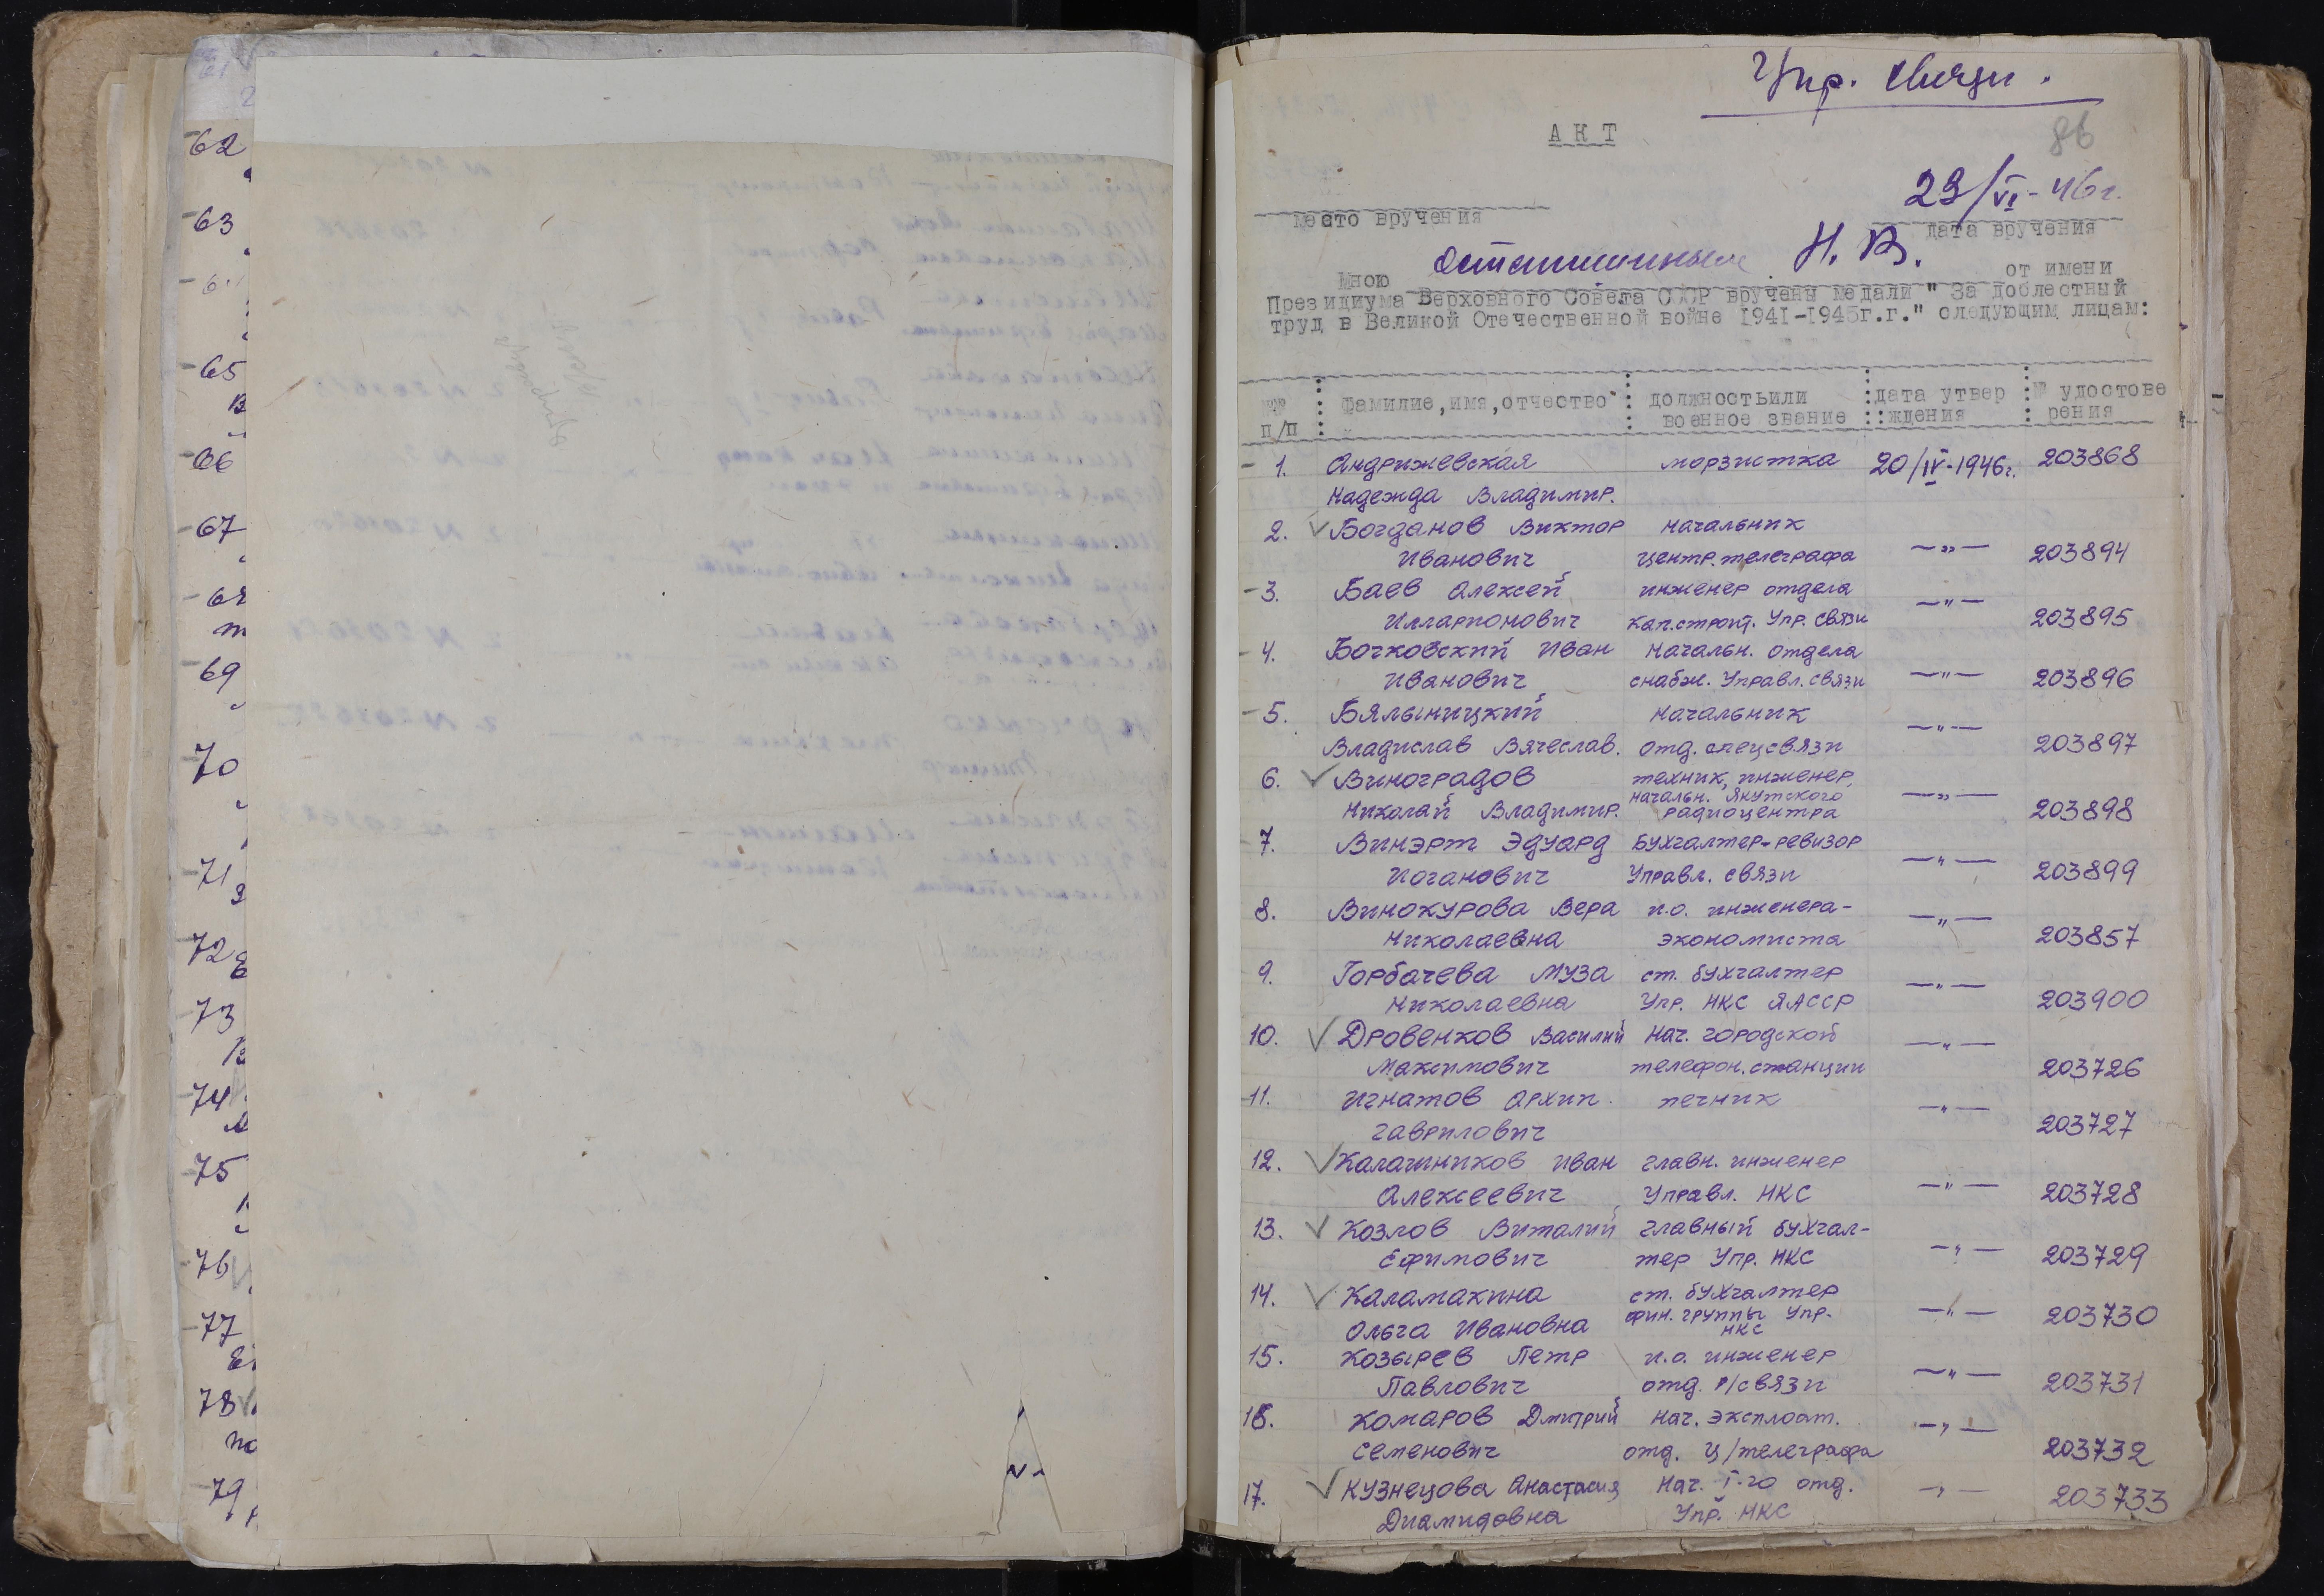 62
63
65
В
66
67
68
т
69
70
71
72
73
74
75
76
77
78
79
Упр. связи.
86
АКТ
29/VI-46г.
место вручения
дата вручения
Мною Осташинным Н. В. от имени
Президиума Верховного Совета СССР вручены медали " За доблестный
труд в Великой Отечественной войне 1941-1945г.г." следующим лицам:
№№ п/п фамилие,имя,отчество должностьили военное звание дата утвер ждения № удостове рения
1. Андрижевская морзистка 20/IV-1946г. 203868
Надежда Владимир.
2. Богданов Виктор начальник
Иванович центр. телеграфа —"— 203894
3. Баев Алексей инженер отдела
Илларионович кап.строит. Упр. связи —"— 203895
4. Бочковский Иван начальн. отдела
Иванович снабж. Управл. связи —"— 203896
5. Бялыницкий начальник
Владислав Вячеслав. отд. спецсвязи —"— 203897
6. Виноградов техник, инженер,
начальн. Якутского
Николай Владимир. радиоцентра —"— 203898
7. Винэрт Эдуард бухгалтер-ревизор
Иоганович Управл. связи —"— 203899
8. Винокурова Вера и.о. инженера-
Николаевна экономиста —"— 203857
9. Горбачева Муза ст. бухгалтер
Николаевна Упр. НКС ЯАССР —"— 203900
10. Дровенков Василий нач. городской
Максимович телефон. станции —"— 203726
11. Игнатов Архип. печник
Гаврилович —"— 203727
12. Калашников Иван главн. инженер
Алексеевич Управл. НКС —"— 203728
13. Козлов Виталий главный бухгал-
Ефимович тер Упр. НКС —"— 203729
14. Каламакина ст. бухгалтер
Ольга Ивановна фин. группы Упр. НКС —"— 203730
15. Козырев Петр и.о. инженер
Павлович отд. р/связи —"— 203731
16. Комаров Дмитрий нач. эксплоат.
Семенович отд. ц/телеграфа —"— 203732
17. Кузнецова Анастасия Нач. I-го отд.
Диамидовна Упр. НКС —"— 203733